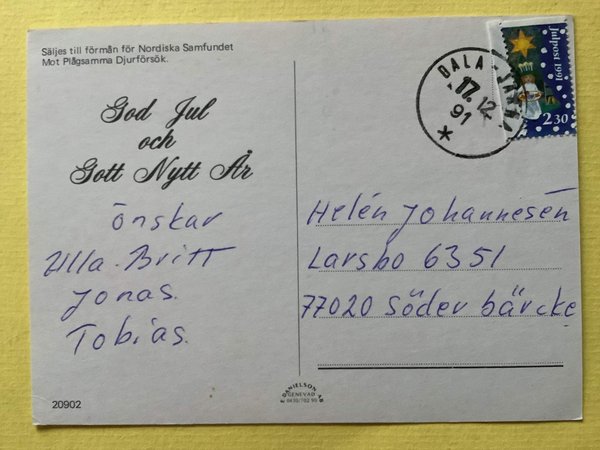 Säljes till förmån för Nordiska Samfundet
Mot Plågsamma Djurförsök.
God Jul
och
Gott Nytt År
önskar
Ulla-Britt
Jonas.
Tobias.
20902
Julpost 1991
2.30
DALA-JÄRNA
17.12
91
Helén Johannesén
Larsbo 6351
77020 Söder bärcke
DANIELSON
GENEVAD